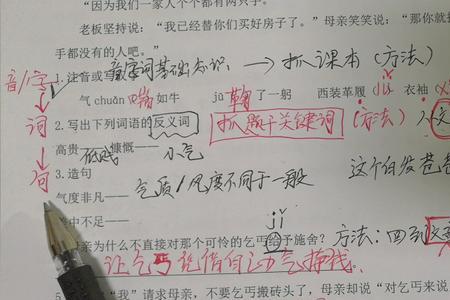 “因为我们一家人个个都有两只手。”
老板坚持说：“我已经替你们买好房子了。”母亲笑笑说：“那你就
手都没有的人吧。”
音/字 1.注音或写 音字词基础知识：→抓课本（方法）
气 chuǎn 喘 如牛 jū 鞠 了一躬 西装革履 lǚ 衣袖
词 2.写出下列词语的反义词 抓题干关键词（方法）
高贵—低贱 慷慨——小气
句 3.造句 这个白发苍苍
气度非凡—— 气质/风度不同于一般
中不足——
jǐ
母亲为什么不直接对那个可怜的乞丐给予施舍？ 方法：四到
让乞丐凭借自己力气挣钱。
5. “我”请求母亲，不要乞丐搬砖头了，母亲却说“对乞丐来说